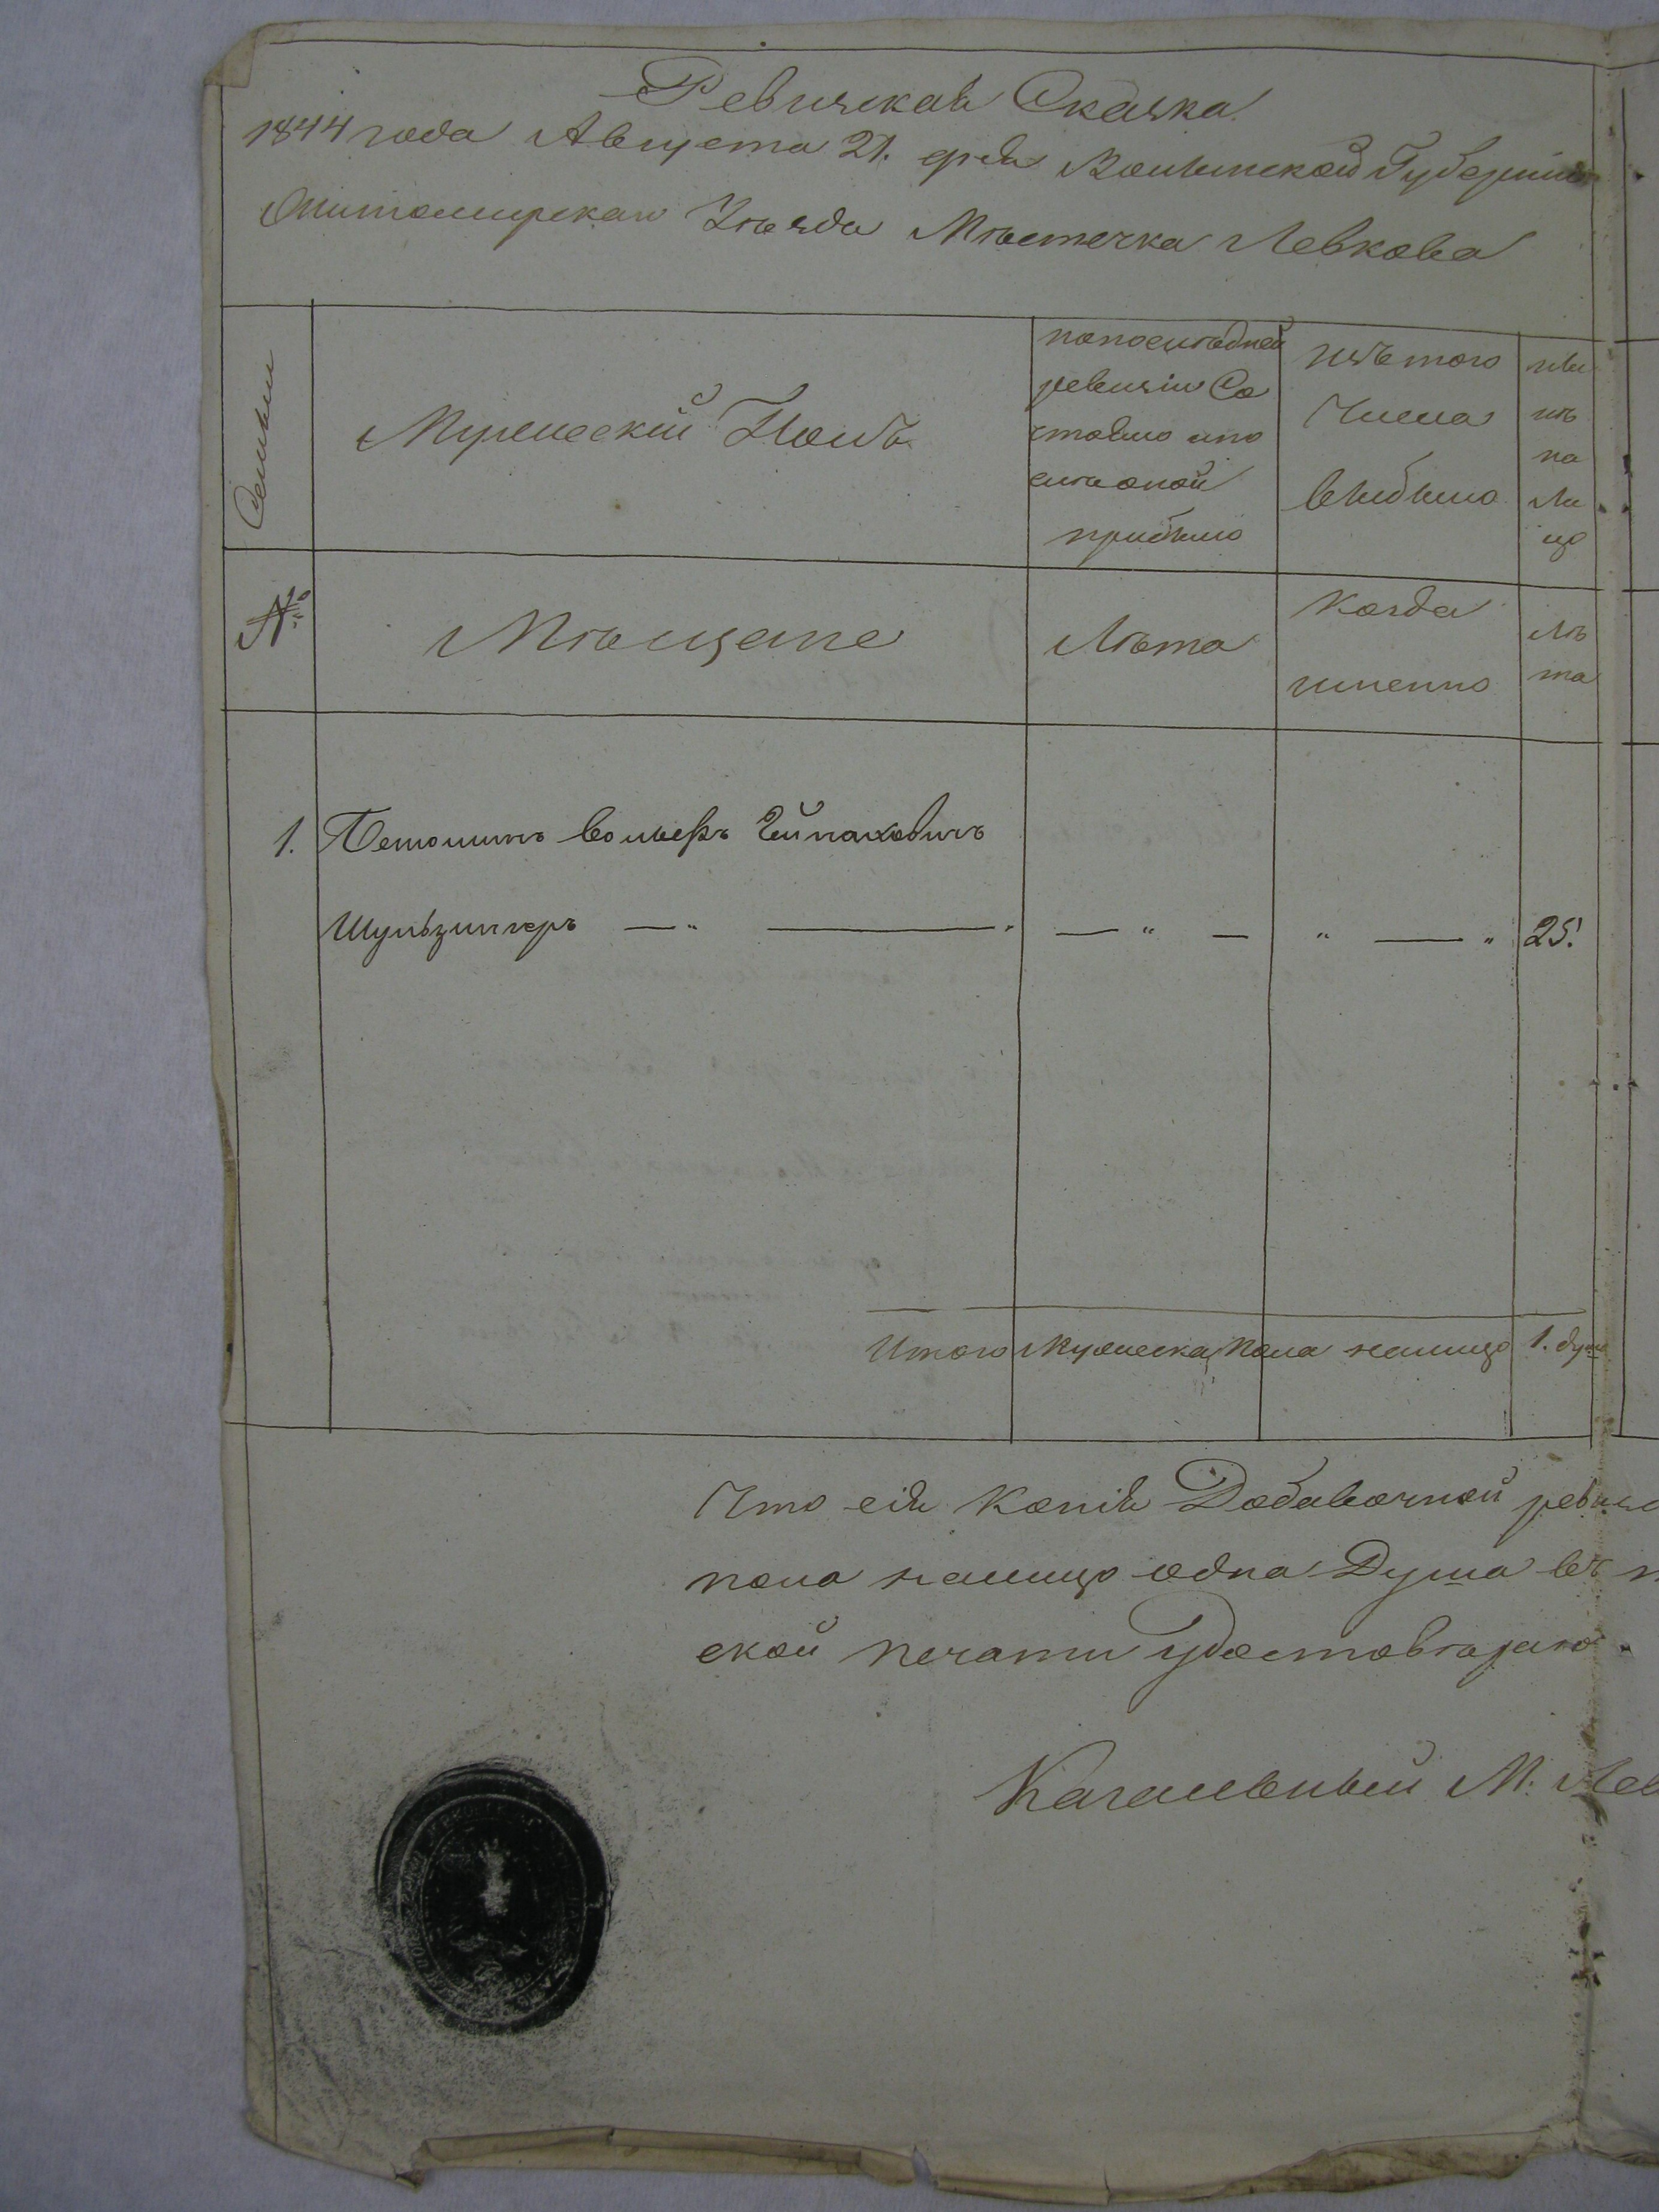 Ревизская Сказка
1844 года Августа 21. дня Волынской Губерніи
Житомирскаго Уѣзда Мѣстечка Левкова
Семьи
Мужескій Полъ
попослѣдней
ревизіи Со
стояло ипо
слѣ оной
прибыло
изъ того
Числа
выбыло
ны
нѣ
на
ли
цо
№
Мѣщане
Лѣта
Когда
именно
лѣ
та
1.
Шульзингеръ — „ — „ — „ — „ — „ 25.
Итого Мужеска Пола налицо 1. душ
Что сія Копія Добавочной
пола налицо одна Душа въ
ской печати Удостовѣряю.
Кагальный М. Лев